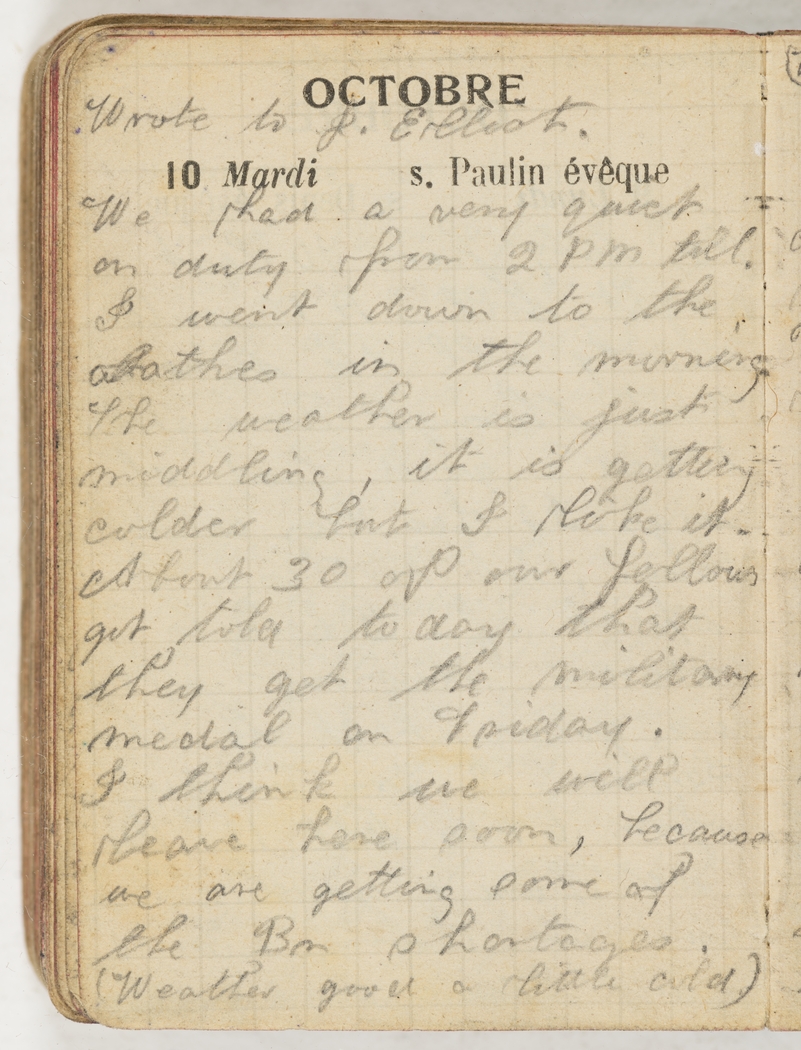 OCTOBRE
Wrote to J. Elliot.
10 Mardi s. Paulin évêque
We had a very quiet
on duty from 2 PM till.
I went down to the
in the morning
The weather is just
middling, it is getting
colder but I like it.
About 30 of our fellows
got told today that
they get the military
medal on Friday.
I think we will
leave here soon, because
we are getting some of
the Bn shortages.
(Weather good a little cold)